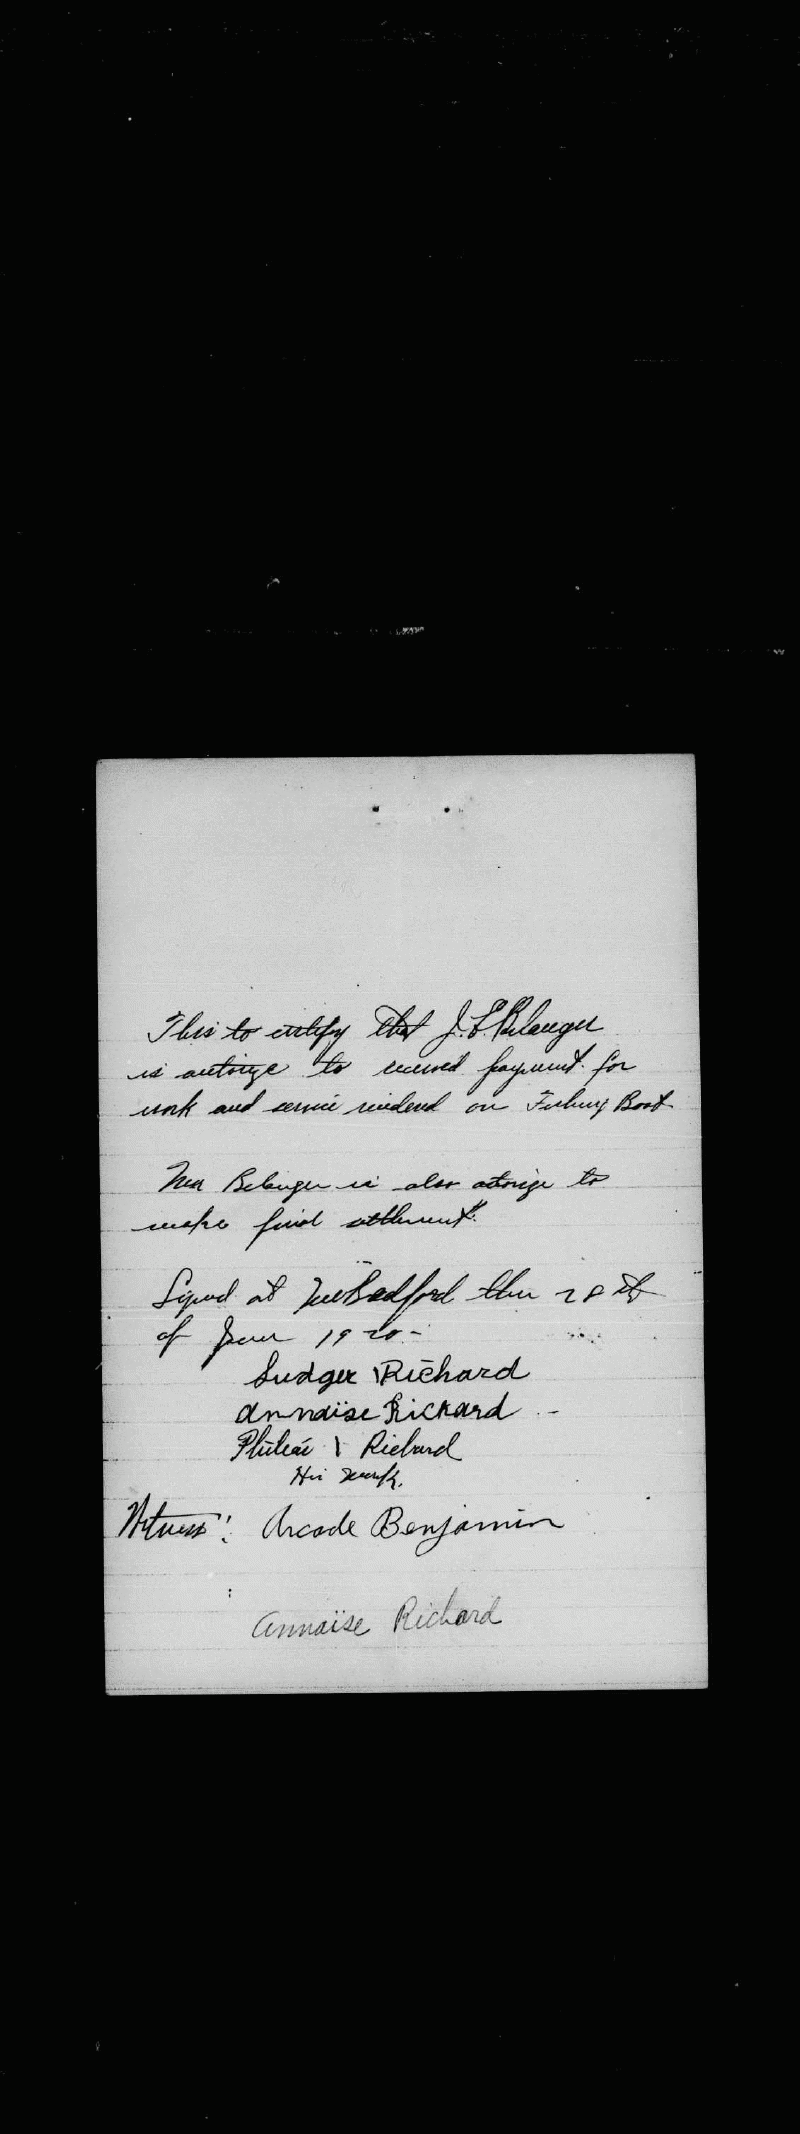 This to certify that J. E. Belanger
is autorize to received payment for
work and service rendered on Fishing Boat
Mr Belanger is also atorize to
make final settlment.
Signed at New Bedford this 28 th
of June 1920 -
Ludger Richard
Annaïse Richard -
Richard
His mark.
Witness: Arcade Benjamin
Annaïse Richard